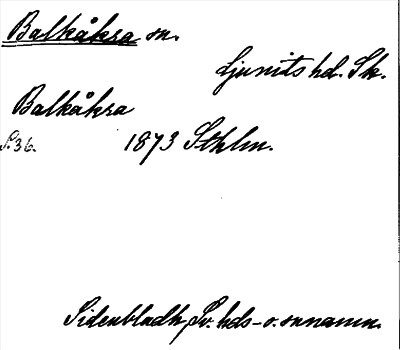 Balkåkra sn.
Ljunits hd. Sk.
Balkåkra
S. 36. 1873 Sthlm.
Sidenbladh, Sv. hds- o. snnamn.